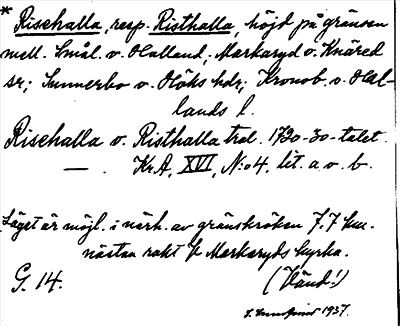 * Risehalla, resp. Risthalla, höjd på gränsen
mell. Smål. o. Halland; Markaryd o. Knäred
sr; Sunnerbo o. Höks hdr; Kronob. o. Hal-
lands l.
Risehalla o. Risthalla trol. 1720-30-talet.
— . Kr.A, XVI, N:o 4, lit. a o. b.
Läget är möjl. i närh. av gränskröken 7,7 km.
nästan rakt V Markaryds kyrka.
G. 14. (Vänd!)
1937.